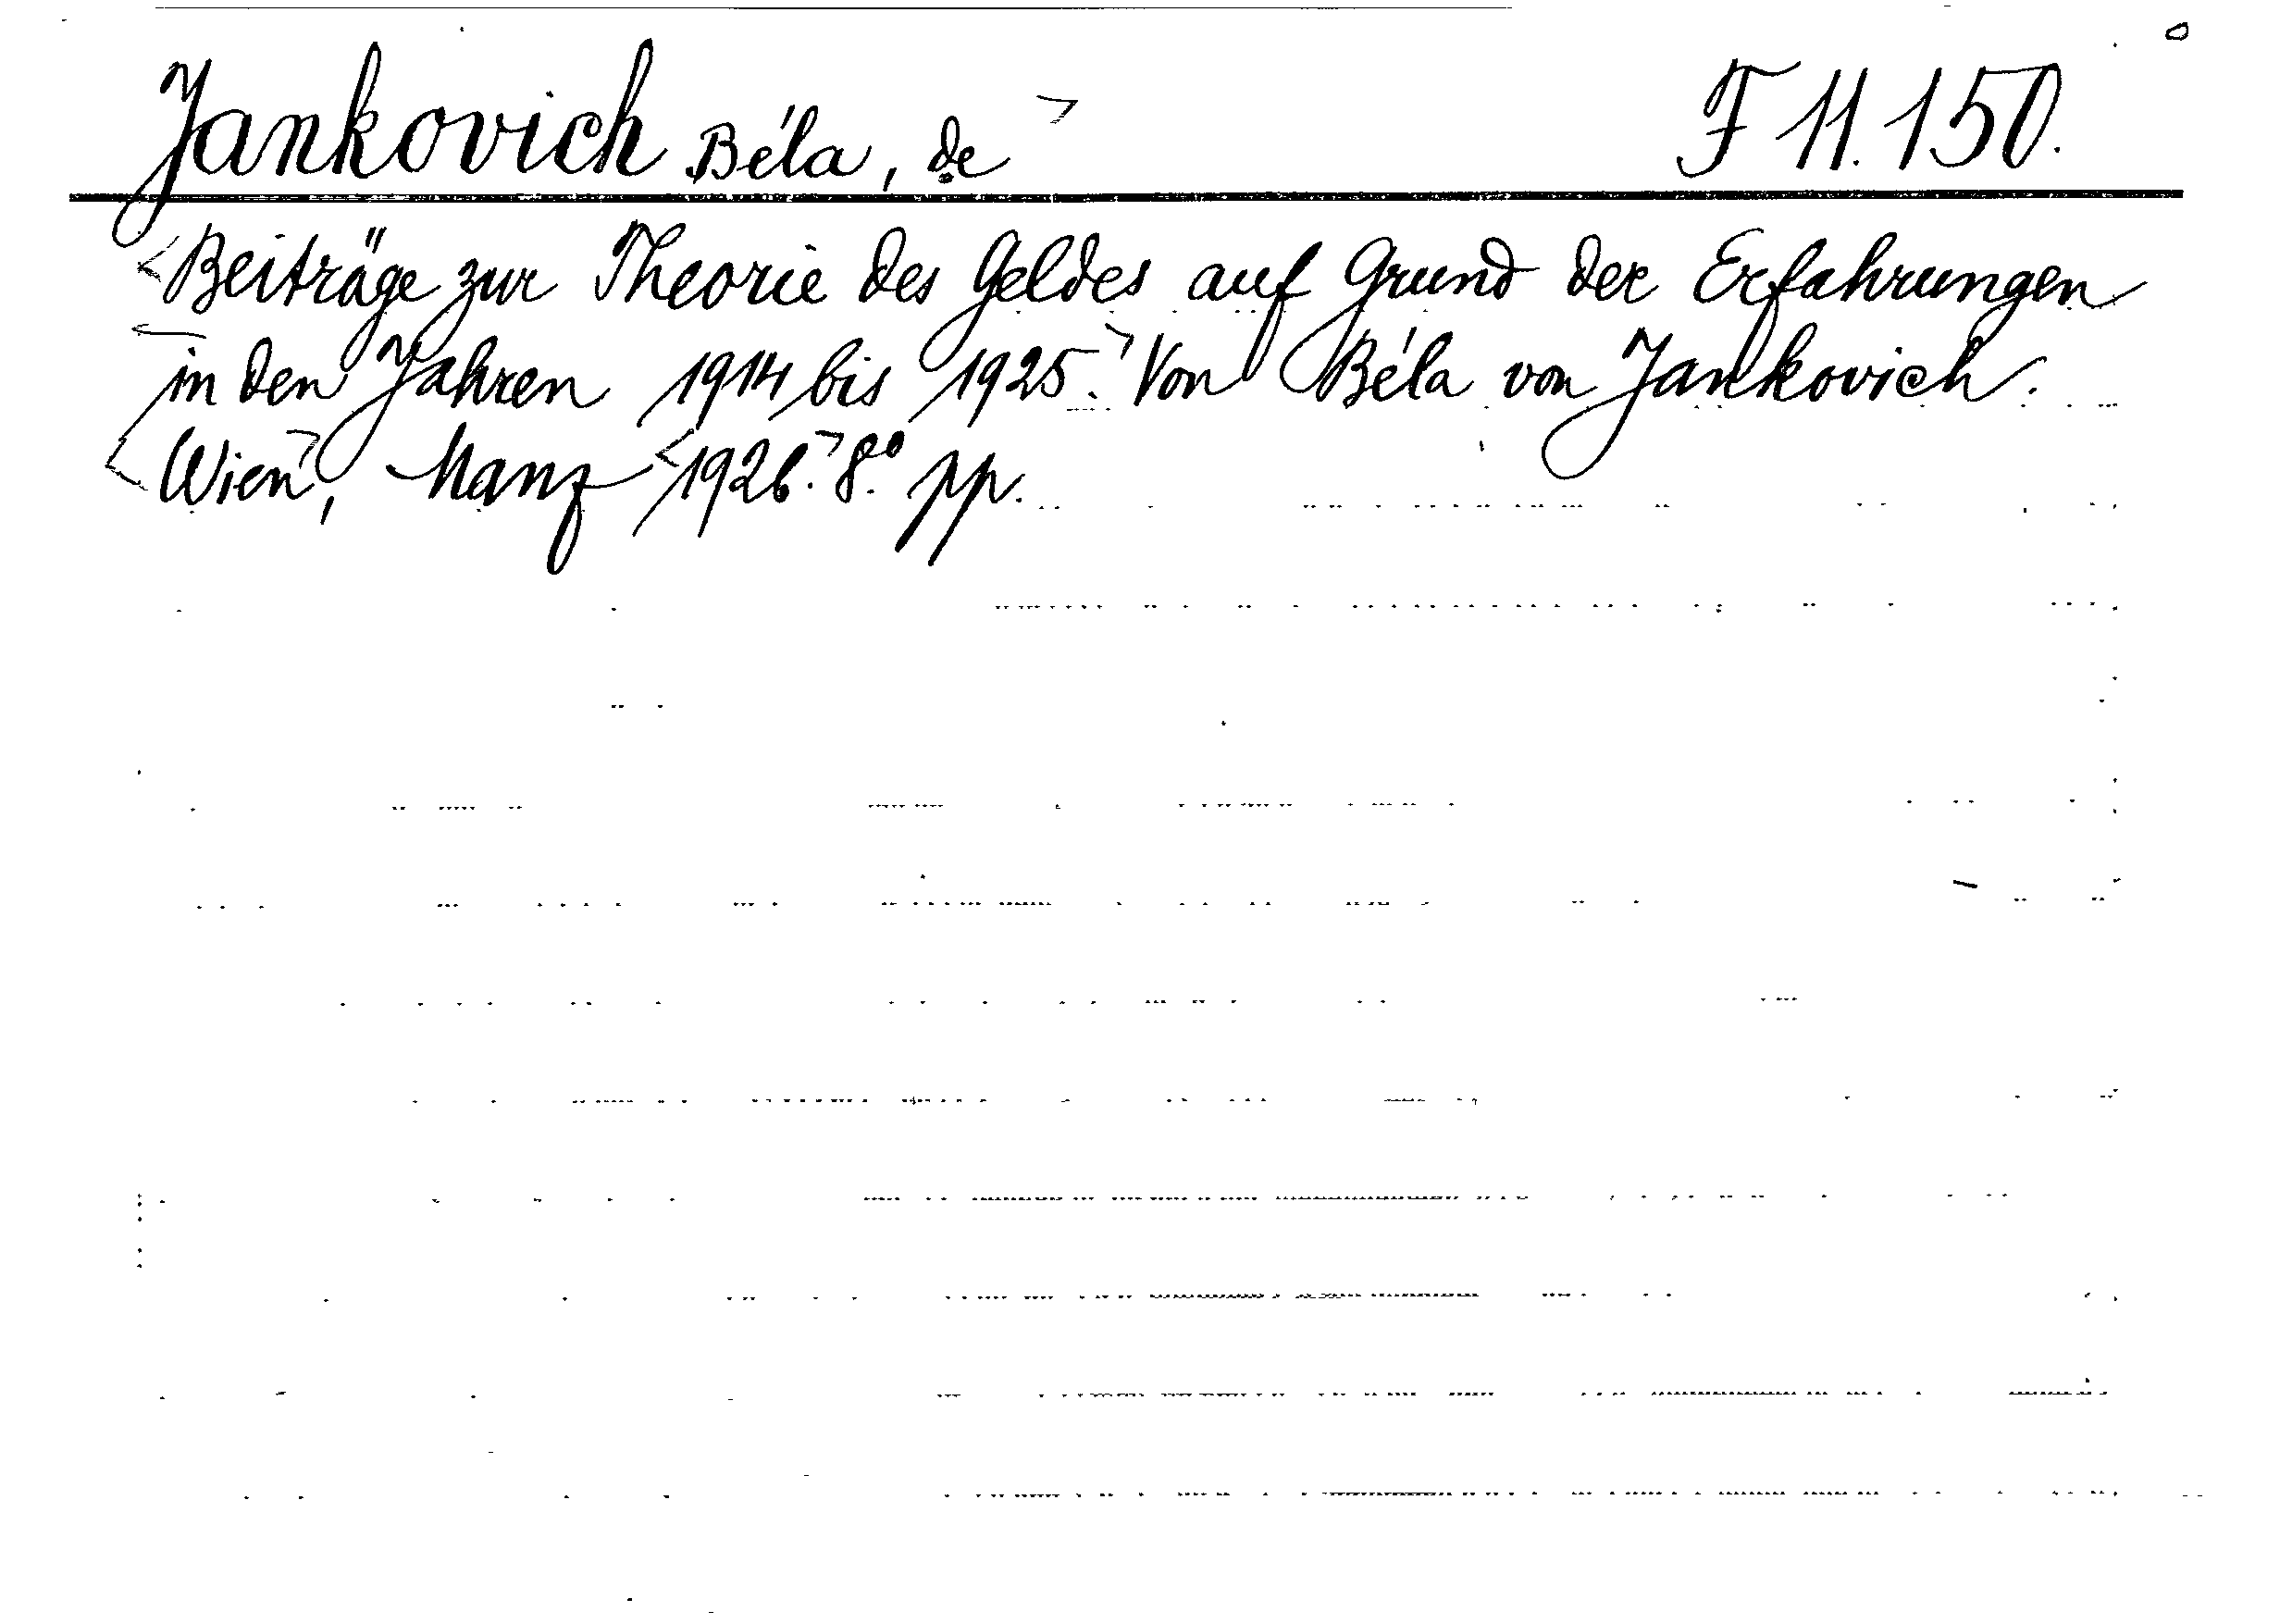 Jankovich Béla, de F 11.150.
Beiträge zur Theorie des Geldes auf Grund der Erfahrungen
in den Jahren 1914 bis 1925. Von Béla von Jankovich.
Wien, Manz 1926. 8.º pp.